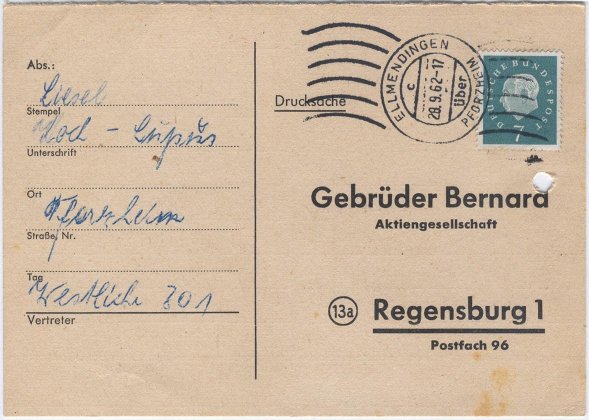 Abs.:
Liesel
Stempel
Hoch - Lupus
Unterschrift
Ort
Pforzheim
Straße, Nr.
Tag
Westliche 301
Vertreter
Drucksache
ELLMENDINGEN
über
PFORZHEIM
c
20.9.62-17
DEUTSCHE BUNDESPOST
7
Gebrüder Bernard
Aktiengesellschaft
13a
Regensburg 1
Postfach 96